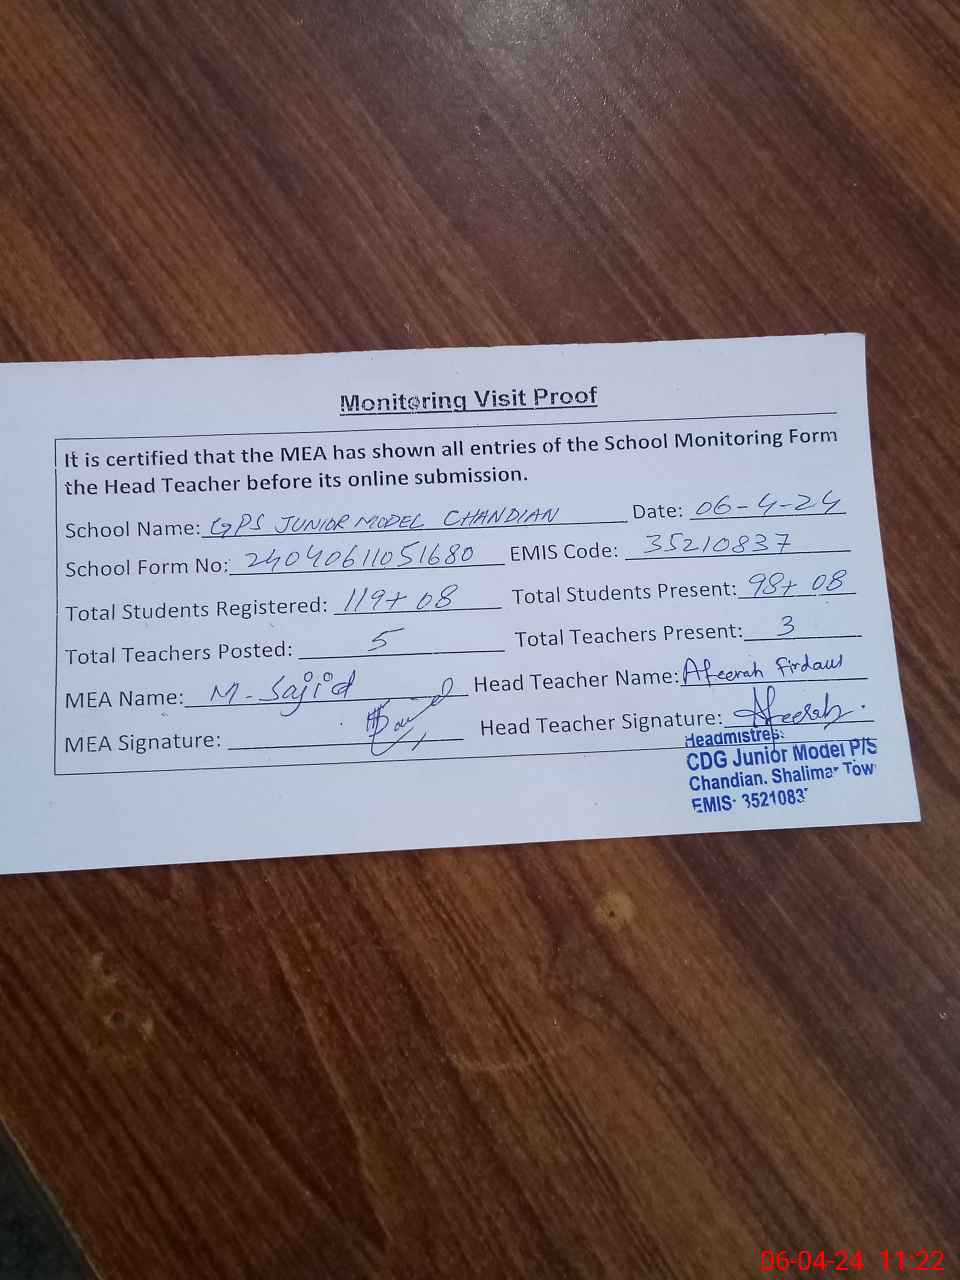 Monitoring Visit Proof
It is certified that the MEA has shown all entries of the School Monitoring Form
the Head Teacher before its online submission.
School Name: GPS JUNIOR MODEL CHANDIAN Date: 06-4-24
School Form No: 24040611051680 EMIS Code: 35210837
Total Students Registered: 119+08 Total Students Present: 98+08
Total Teachers Posted: 5 Total Teachers Present: 3
MEA Name: M-Sajid Head Teacher Name: Afeerah Firdaus
MEA Signature: Head Teacher Signature: Afeerah.
Headmistress
CDG Junior Model P/S
Chandian. Shalimar Tow
EMIS- 3521083
06-04-24 11:22